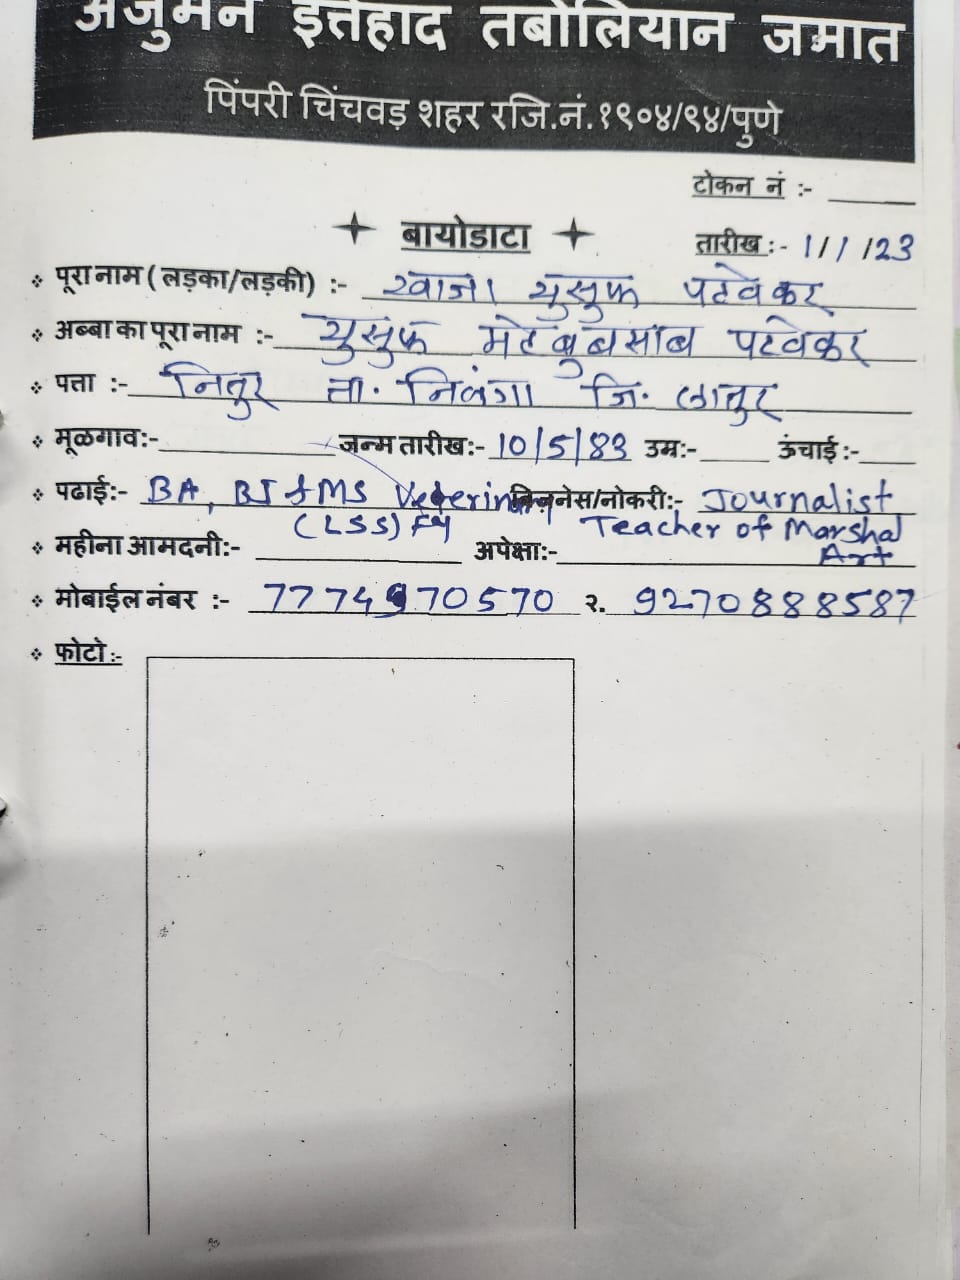 अंजुमन इत्तेहाद तबोलियान जमात
पिंपरी चिंचवड़ शहर रजि.नं.१९०४/९४/पुणे
टोकन नं :-
बायोडाटा
तारीख :- 1/1/23
पूरा नाम ( लड़का/लड़की) :- ख्वाजा युसुफ पटवेकर
अब्बा का पूरा नाम :- युसुफ मेहबुबसाब पटवेकर
पत्ता :- नितुर ता. निलंगा जि. लातुर
मूळगाव:- जन्म तारीख:- 10/5/83 उम्र:- ऊंचाई :-
पढाई:- BA, BJ &MS Veterinary बिज़नेस/नोकरी:- Journalist
(LSS) FY Teacher of Marshal
महीना आमदनी:- अपेक्षा:- Art
मोबाईल नंबर :- 7774970570 २. 9270888587
फोटो :-